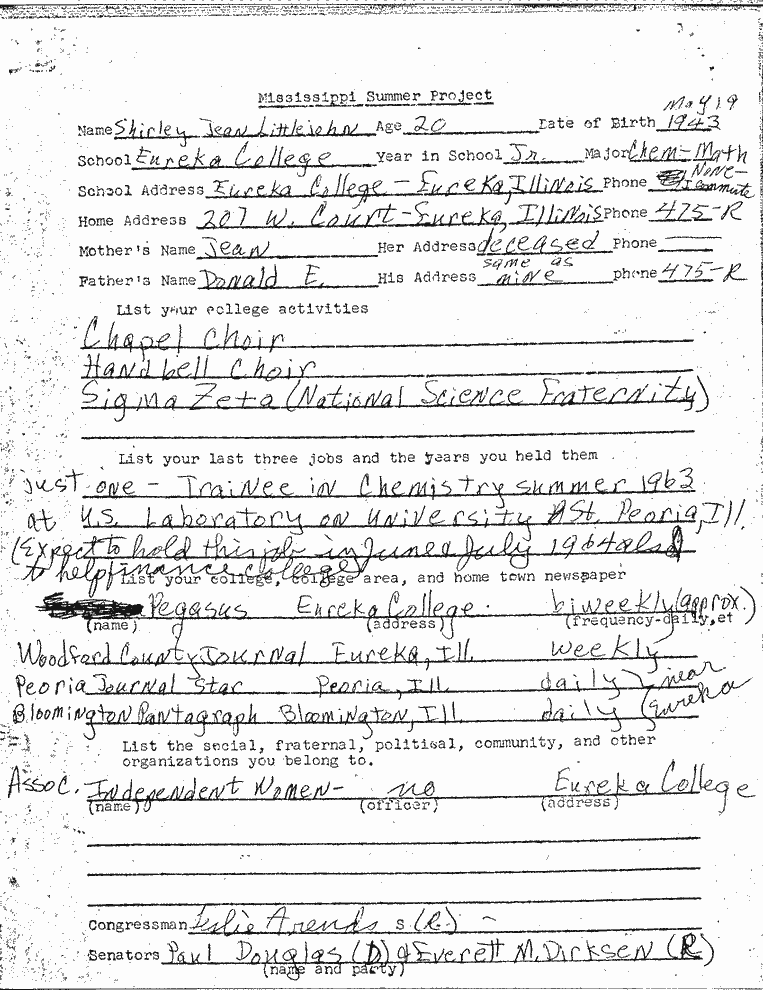 Mississippi Summer Project
May 19
Name Shirley Jean Littlejohn Age 20 Date of Birth 1943
School Eureka College Year in School Jr. Major Chem-Math
School Address Eureka College - Eureka, Illinois Phone None - I commute
Home Address 207 W. Court - Eureka, Illinois Phone 475-R
Mother's Name Jean Her Address deceased Phone
Father's Name Donald E. His Address same as mine phone 475-R
List your college activities
Chapel Choir
Handbell Choir
Sigma Zeta (National Science Fraternity)
List your last three jobs and the years you held them
just one - Trainee in Chemistry summer 1963
at U.S. Laboratory on University St. Peoria, Ill.
(Expect to hold this job in June & July 1964 also
to help finance college)
List your college, college area, and home town newspaper
Pegasus Eureka College biweekly (approx.)
(name) (address) (frequency-daily, et
Woodford County Journal Eureka, Ill. weekly
Peoria Journal Star Peoria, Ill. daily near
Bloomington Pantagraph Bloomington, Ill. daily Eureka
List the social, fraternal, political, community, and other
organizations you belong to.
Assoc. Independent Women - no Eureka College
(name) (officer) (address)
Congressman Leslie Arends s (R) -
Senators Paul Douglas (D) & Everett M. Dirksen (R)
(name and party)